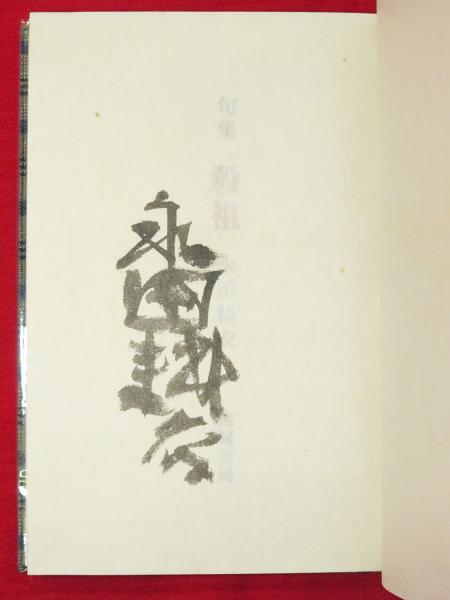 句集 殺祖 永田耕衣 南柯書局
永田耕衣